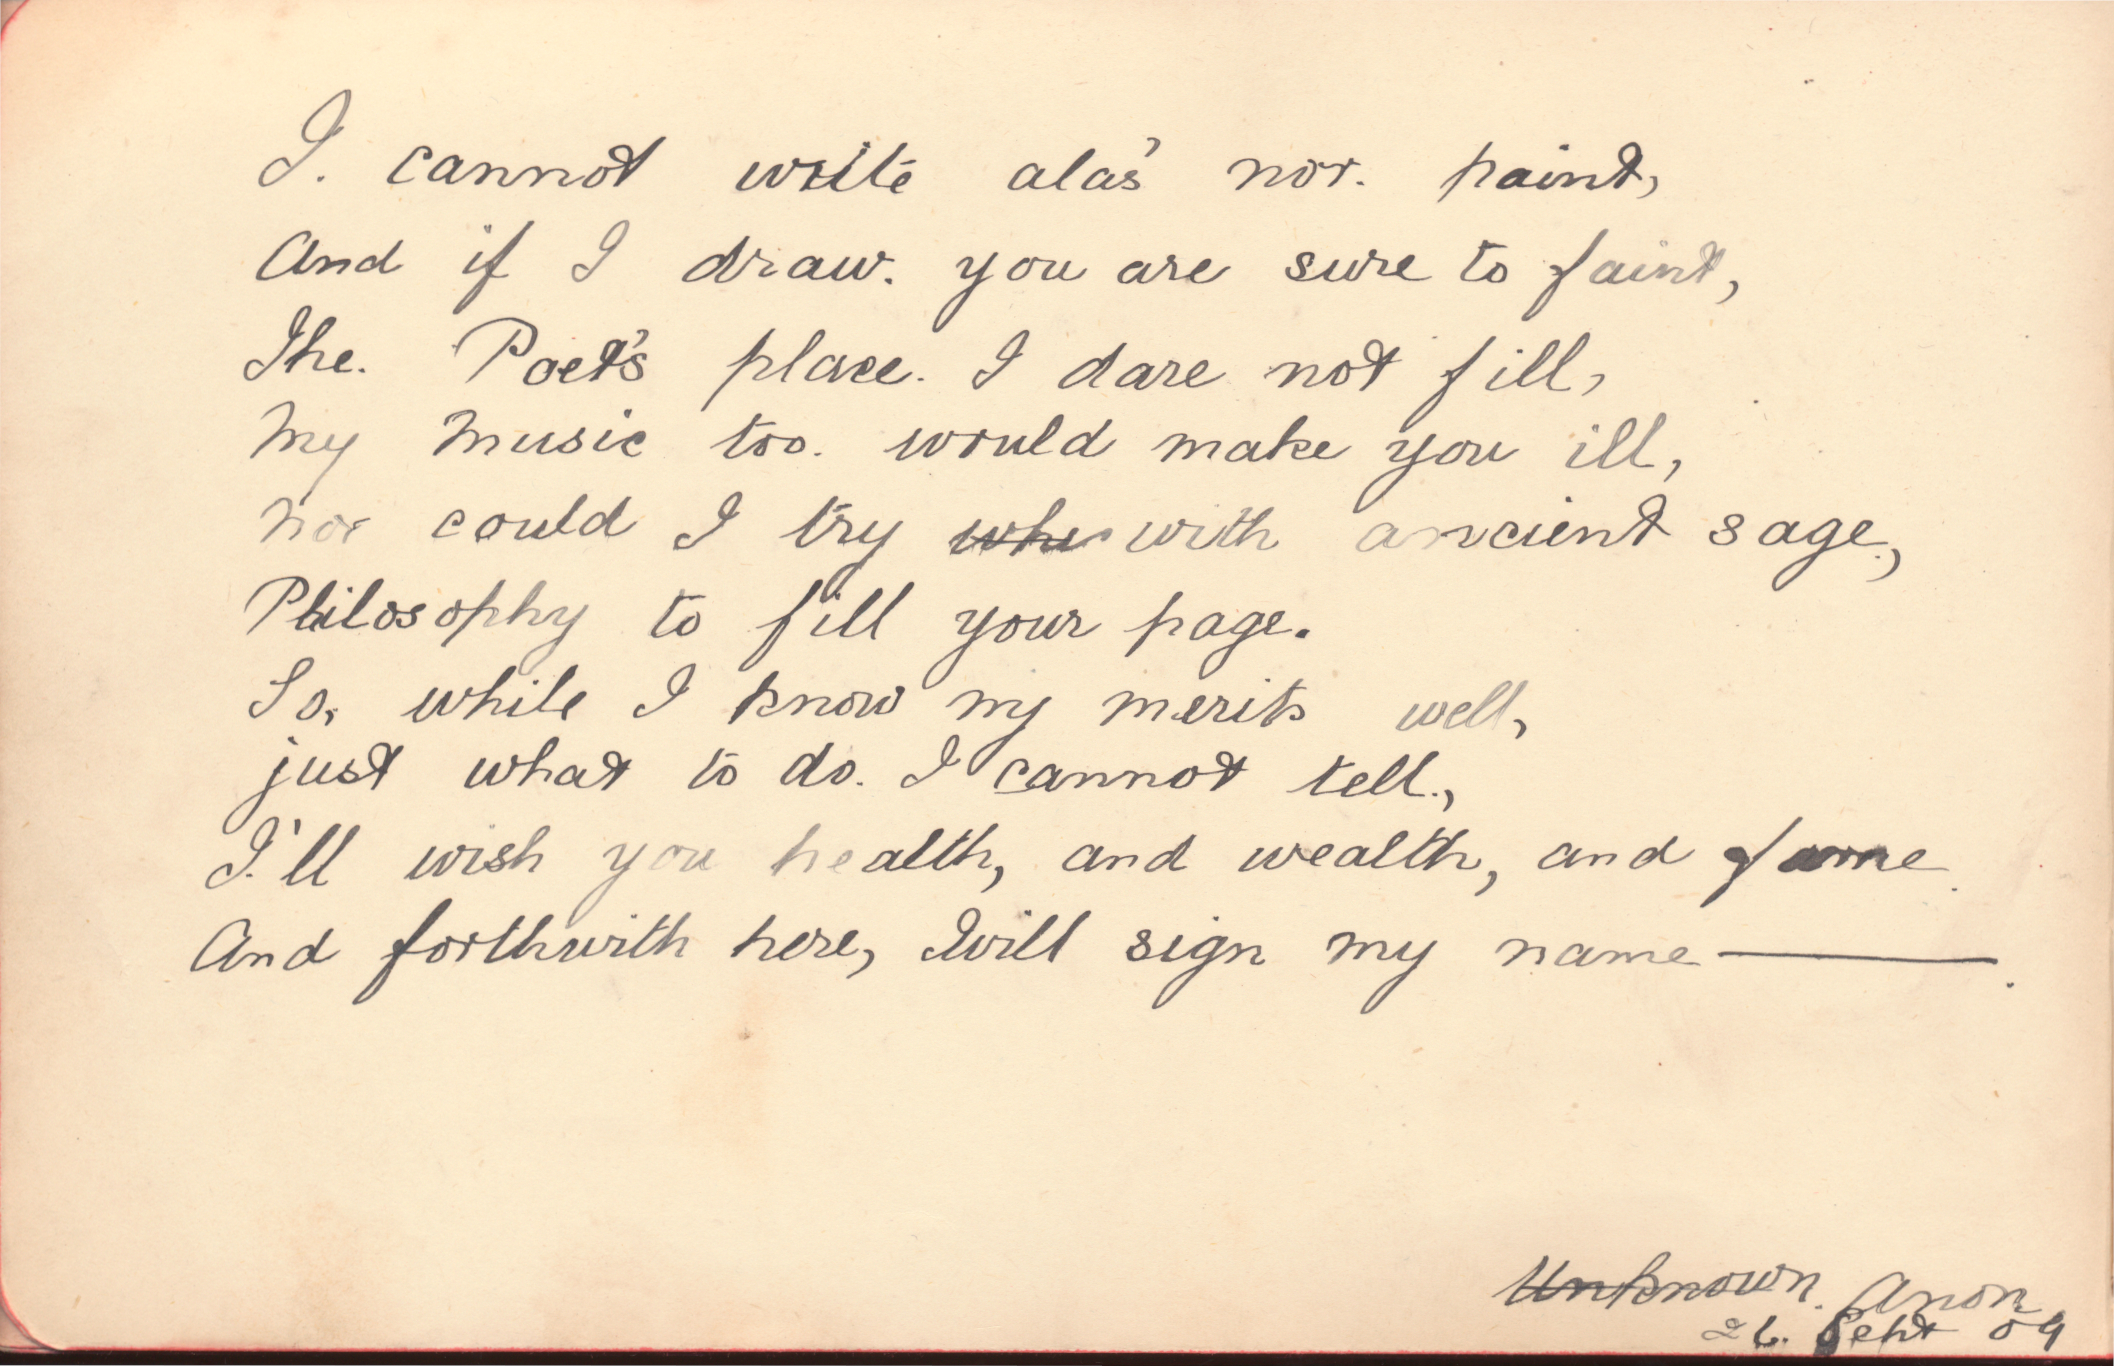 I. cannot write ala's nor. paint,
And if I draw. you are sure to faint,
The. Poet's place. I dare not fill,
My Music too. would make you ill,
Nor could I try whi with ancient sage,
Philosophy to fill your page.
So, while I know my merits well,
just what to do. I cannot tell.,
I.'ll wish you health, and wealth, and fame.
And forthwith here, I will sign my name ———.
Unknown. Anon
26. Sept 09